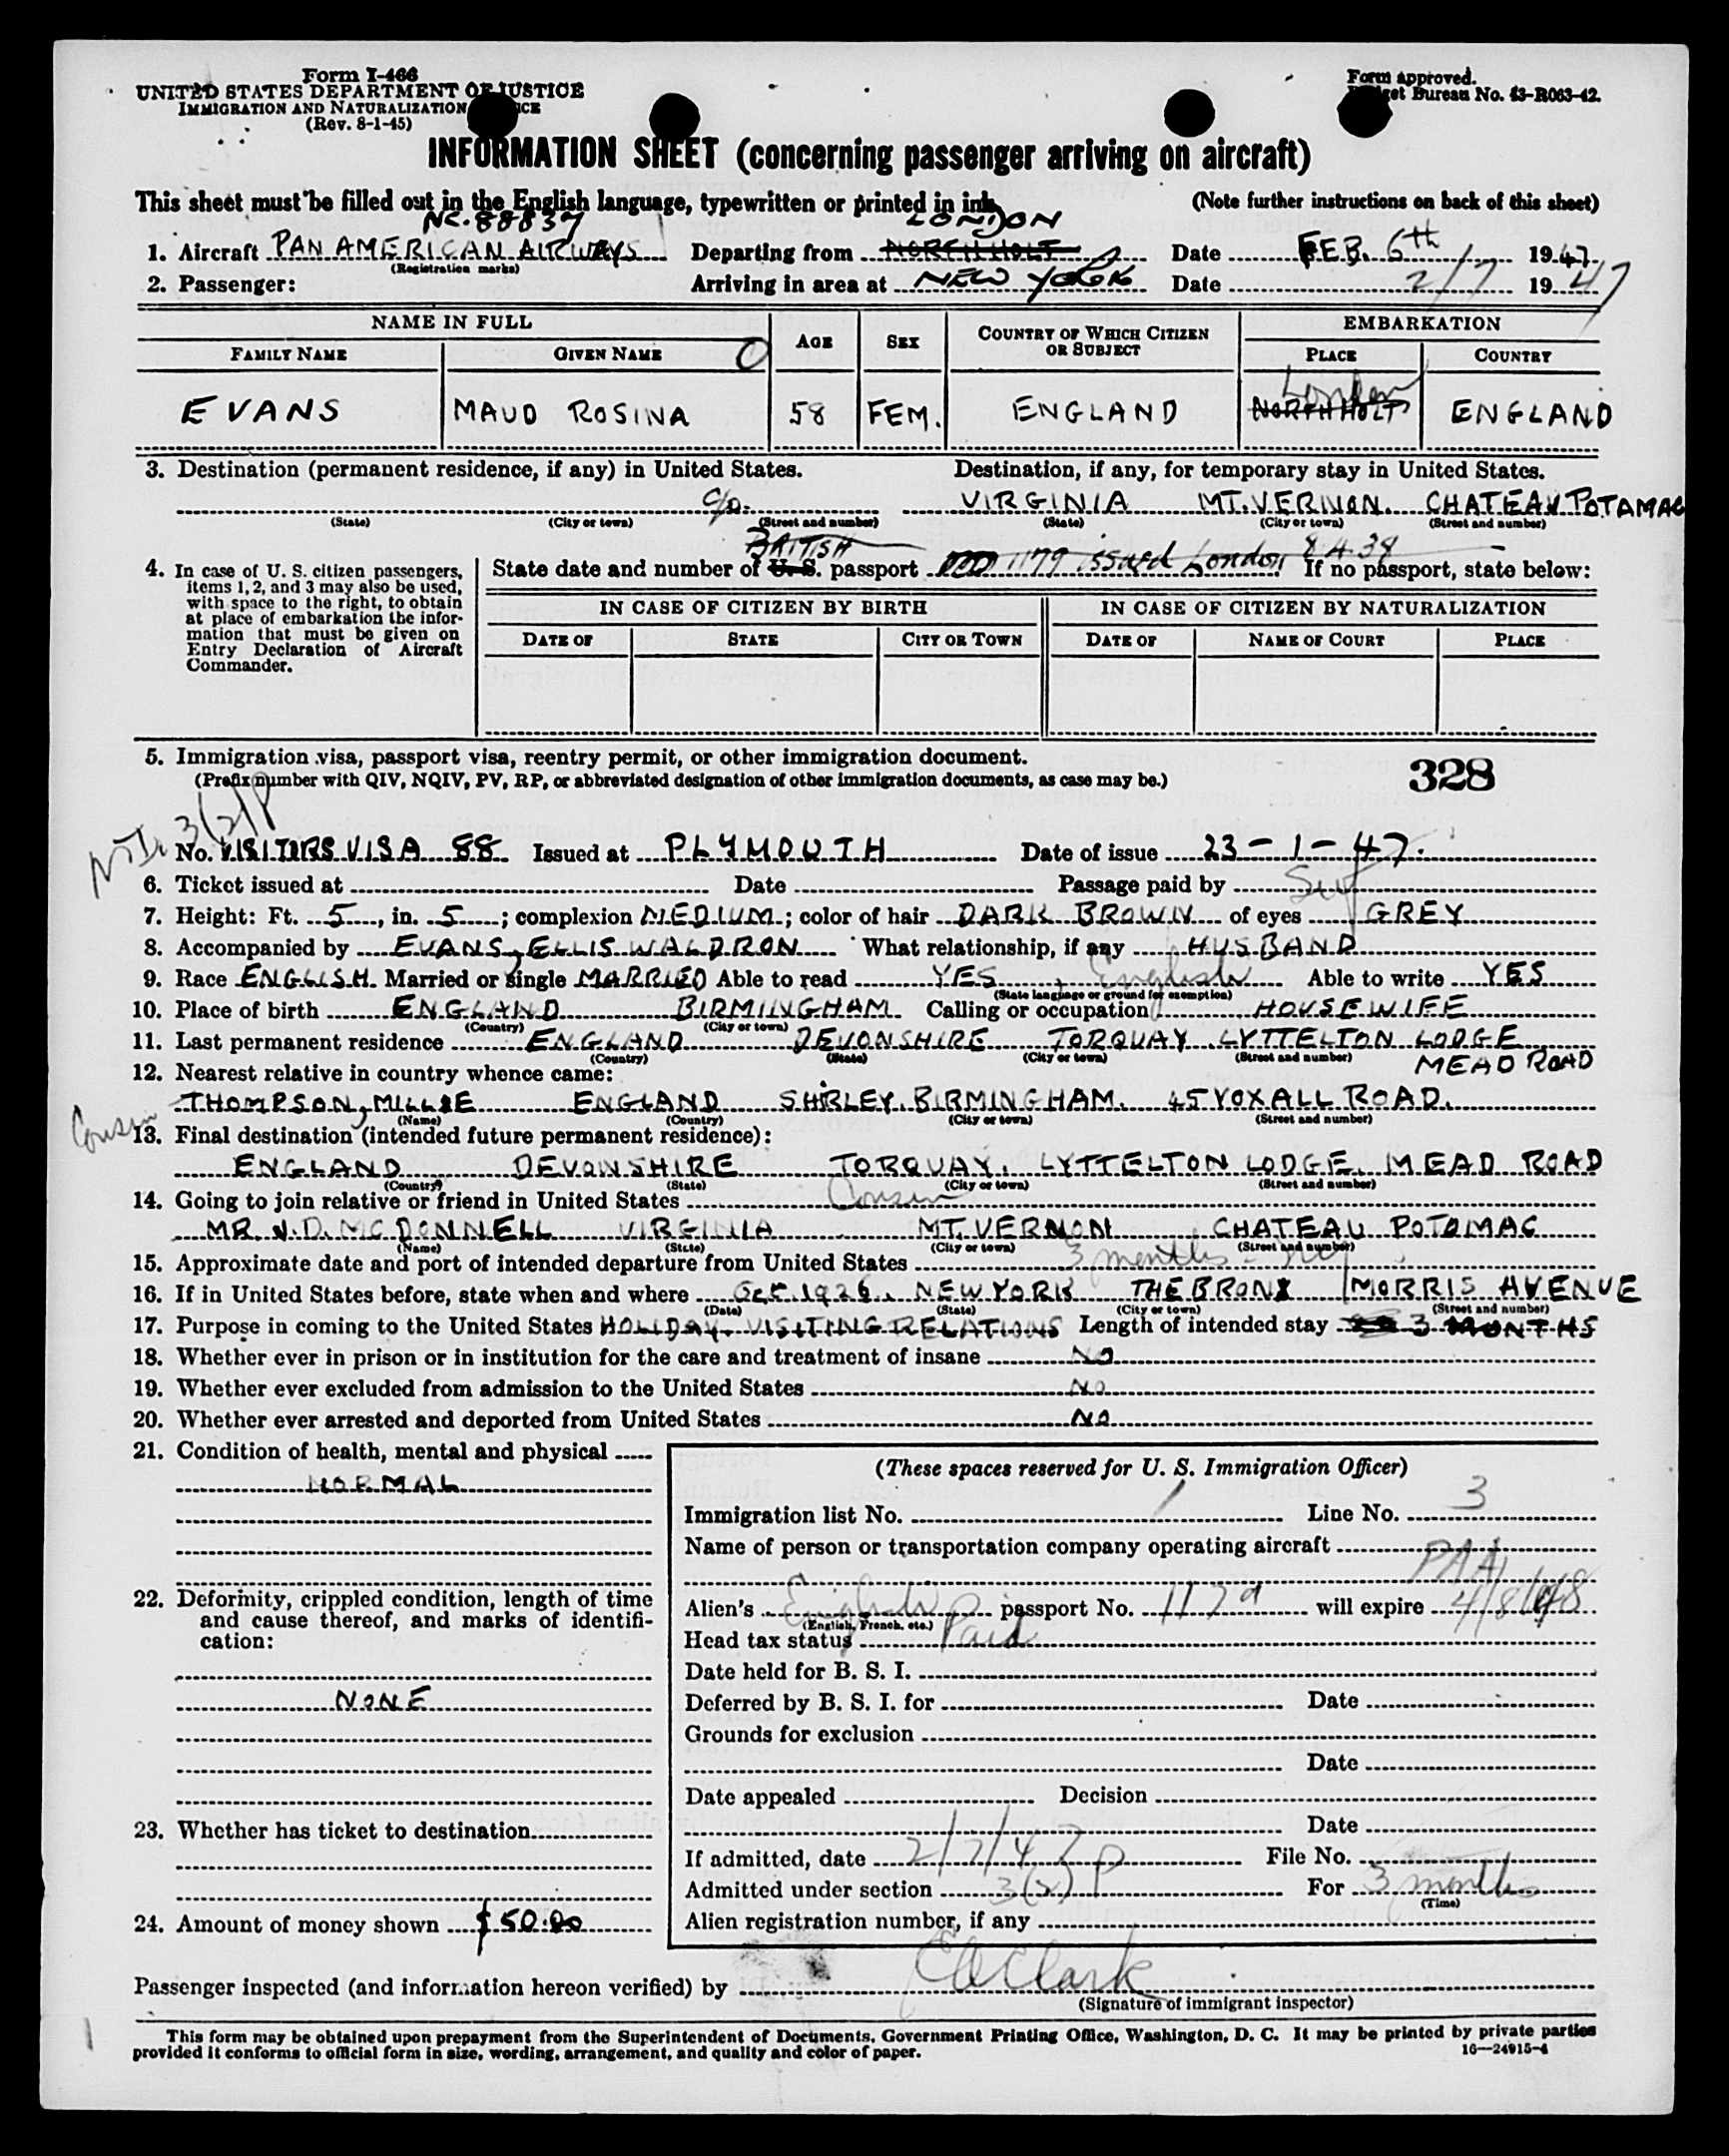 Form I-466
UNITED STATES DEPARTMENT OF JUSTICE
IMMIGRATION AND NATURALIZATION
(Rev. 8-1-45)
Form approved.
Budget Bureau No. 43-R063-42.
INFORMATION SHEET (concerning passenger arriving on aircraft)
This sheet must be filled out in the English language, typewritten or printed in ink. (Note further instructions on back of this sheet)
NC. 88837 LONDON
1. Aircraft PAN AMERICAN AIRWAYS Departing from NORTH HOLT Date FEB. 6th 1947.
(Registration marks)
2. Passenger: Arriving in area at NEW YORK Date 2/7 1947
NAME IN FULL AGE SEX COUNTRY OF WHICH CITIZEN OR SUBJECT EMBARKATION
FAMILY NAME GIVEN NAME PLACE COUNTRY
London
EVANS MAUD ROSINA 58 FEM. ENGLAND NORTH HOLT ENGLAND
3. Destination (permanent residence, if any) in United States. Destination, if any, for temporary stay in United States.
c/o. VIRGINIA MT. VERNON. CHATEAU POTAMAC
(State) (City or town) (Street and number) (State) (City or town) (Street and number)
BRITISH 8.4.38
4. In case of U. S. citizen passengers, items 1, 2, and 3 may also be used, with space to the right, to obtain at place of embarkation the information that must be given on Entry Declaration of Aircraft Commander.
State date and number of U. S. passport 1179 issued London If no passport, state below:
IN CASE OF CITIZEN BY BIRTH IN CASE OF CITIZEN BY NATURALIZATION
DATE OF STATE CITY OR TOWN DATE OF NAME OF COURT PLACE
5. Immigration visa, passport visa, reentry permit, or other immigration document.
(Prefix number with QIV, NQIV, PV, RP, or abbreviated designation of other immigration documents, as case may be.) 328
3(2)P
No. VISITORS VISA 88 Issued at PLYMOUTH Date of issue 23-1-47.
6. Ticket issued at Date Passage paid by Self
7. Height: Ft. 5, in. 5; complexion MEDIUM; color of hair DARK BROWN of eyes GREY
8. Accompanied by EVANS, ELLIS WALDRON What relationship, if any HUSBAND
9. Race ENGLISH. Married or single MARRIED Able to read YES, English Able to write YES
(State language or ground for exemption)
10. Place of birth ENGLAND BIRMINGHAM. Calling or occupation HOUSEWIFE
(Country) (City or town)
11. Last permanent residence ENGLAND DEVONSHIRE TORQUAY LYTTELTON LODGE
(Country) (State) (City or town) (Street and number) MEAD ROAD
12. Nearest relative in country whence came:
Cousin THOMPSON, MILLIE ENGLAND SHIRLEY. BIRMINGHAM. 45 YOXALL ROAD.
(Name) (Country) (City or town) (Street and number)
13. Final destination (intended future permanent residence):
ENGLAND DEVONSHIRE TORQUAY. LYTTELTON LODGE. MEAD ROAD
(Country) (State) (City or town) (Street and number)
14. Going to join relative or friend in United States Cousin
MR. J. D. MCDONNELL VIRGINIA MT. VERNON CHATEAU POTOMAC
(Name) (State) (City or town) (Street and number)
15. Approximate date and port of intended departure from United States 3 months
16. If in United States before, state when and where Oct. 1926. NEW YORK THE BRONX MORRIS AVENUE
(Date) (State) (City or town) (Street and number)
17. Purpose in coming to the United States HOLIDAY. VISITING RELATIONS Length of intended stay 3 MONTHS
18. Whether ever in prison or in institution for the care and treatment of insane NO
19. Whether ever excluded from admission to the United States NO
20. Whether ever arrested and deported from United States NO
21. Condition of health, mental and physical
NORMAL
22. Deformity, crippled condition, length of time and cause thereof, and marks of identification:
NONE
23. Whether has ticket to destination
24. Amount of money shown $50.00
(These spaces reserved for U. S. Immigration Officer)
Immigration list No. 1 Line No. 3
Name of person or transportation company operating aircraft
PAA
Alien's English passport No. 1179 will expire 4/8/48
(English, French, etc.)
Head tax status Paid
Date held for B. S. I.
Deferred by B. S. I. for Date
Grounds for exclusion
Date
Date appealed Decision
Date
If admitted, date 2/7/47 P File No.
Admitted under section 3(2) P For 3 months
(Time)
Alien registration number, if any
Passenger inspected (and information hereon verified) by Clark
(Signature of immigrant inspector)
This form may be obtained upon prepayment from the Superintendent of Documents, Government Printing Office, Washington, D. C. It may be printed by private parties
provided it conforms to official form in size, wording, arrangement, and quality and color of paper. 16—24915-4